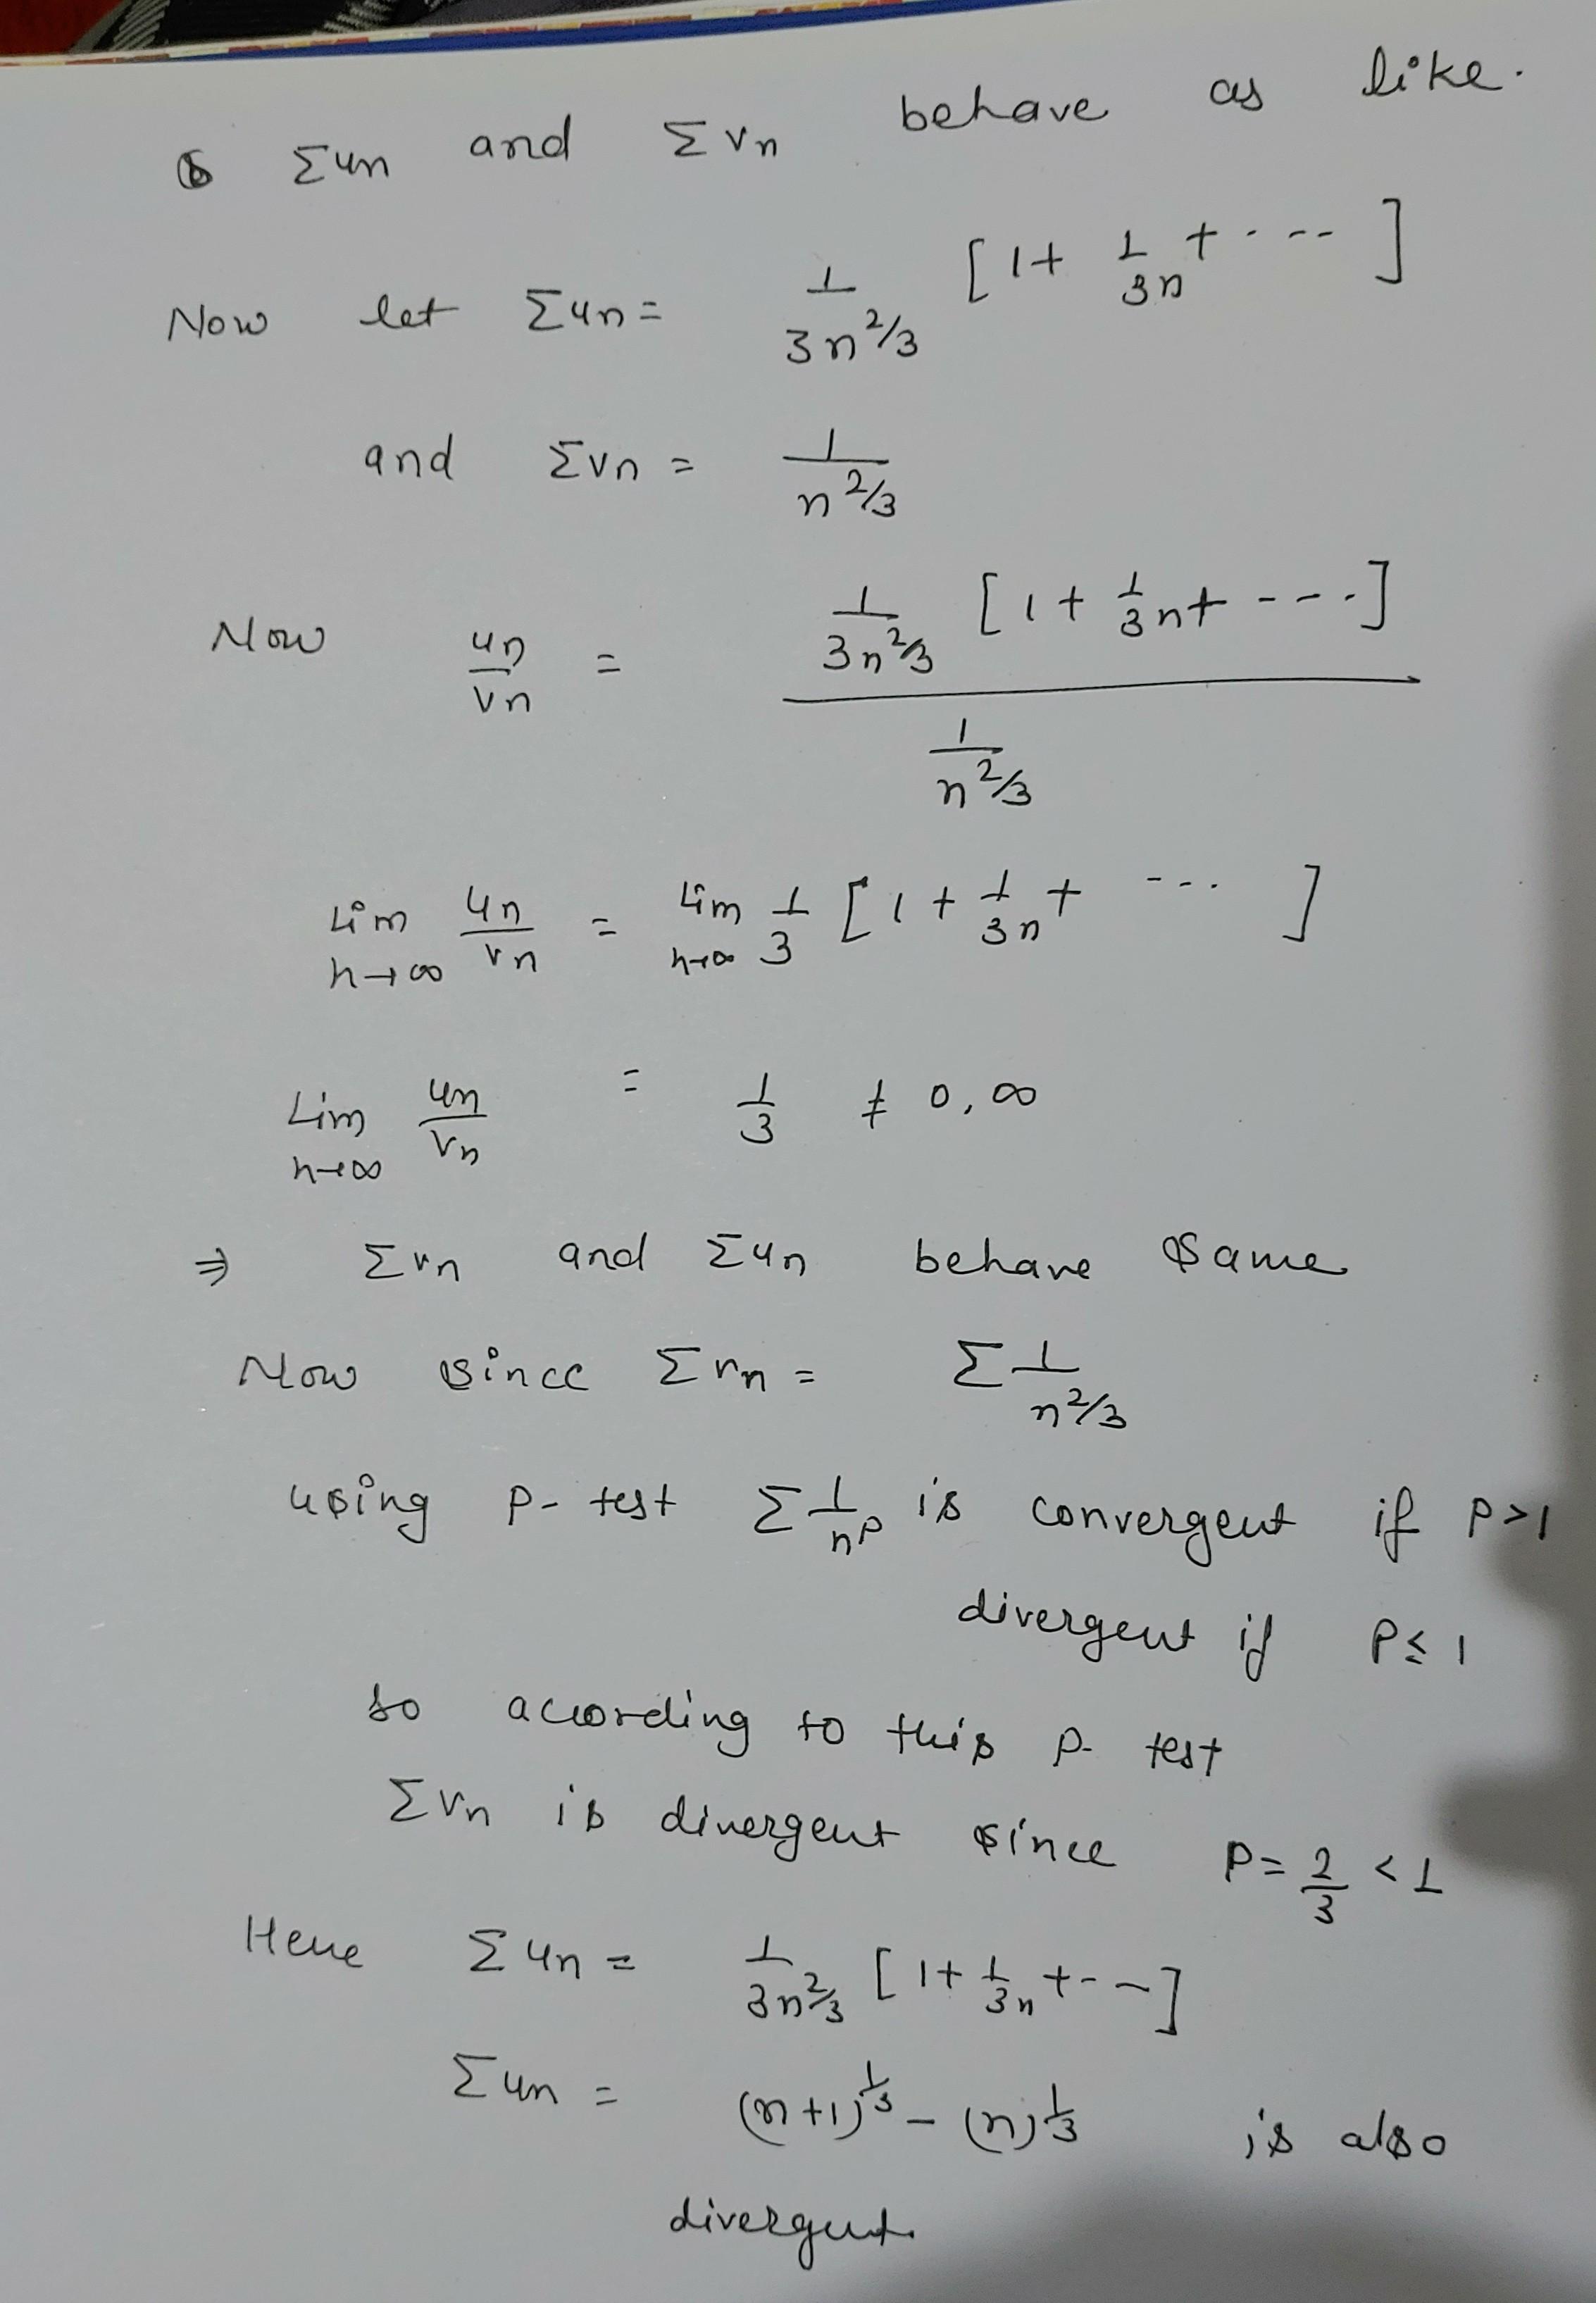 Σun and Σvn behave as like.
Now let Σun = 1/3n^2/3 [1 + 1/3n + ---- ]
and Σvn = 1/n^2/3
Now un/vn = 1/3n^2/3 [1 + 1/3n + ---- ] / 1/n^2/3
Lim n→∞ un/vn = Lim n→∞ 1/3 [1 + 1/3n + --- ]
Lim n→∞ un/vn = 1/3 ≠ 0, ∞
⇒ Σvn and Σun behave same
Now since Σvn = Σ 1/n^2/3
using p-test Σ 1/n^p is convergent if P>1
divergent if P≤1
so acording to this p- test
Σvn is divergent since P = 2/3 < 1
Hene Σun = 1/3n^2/3 [1 + 1/3n + -- ]
Σun = (n+1)^1/3 - (n)^1/3 is also
divergent.